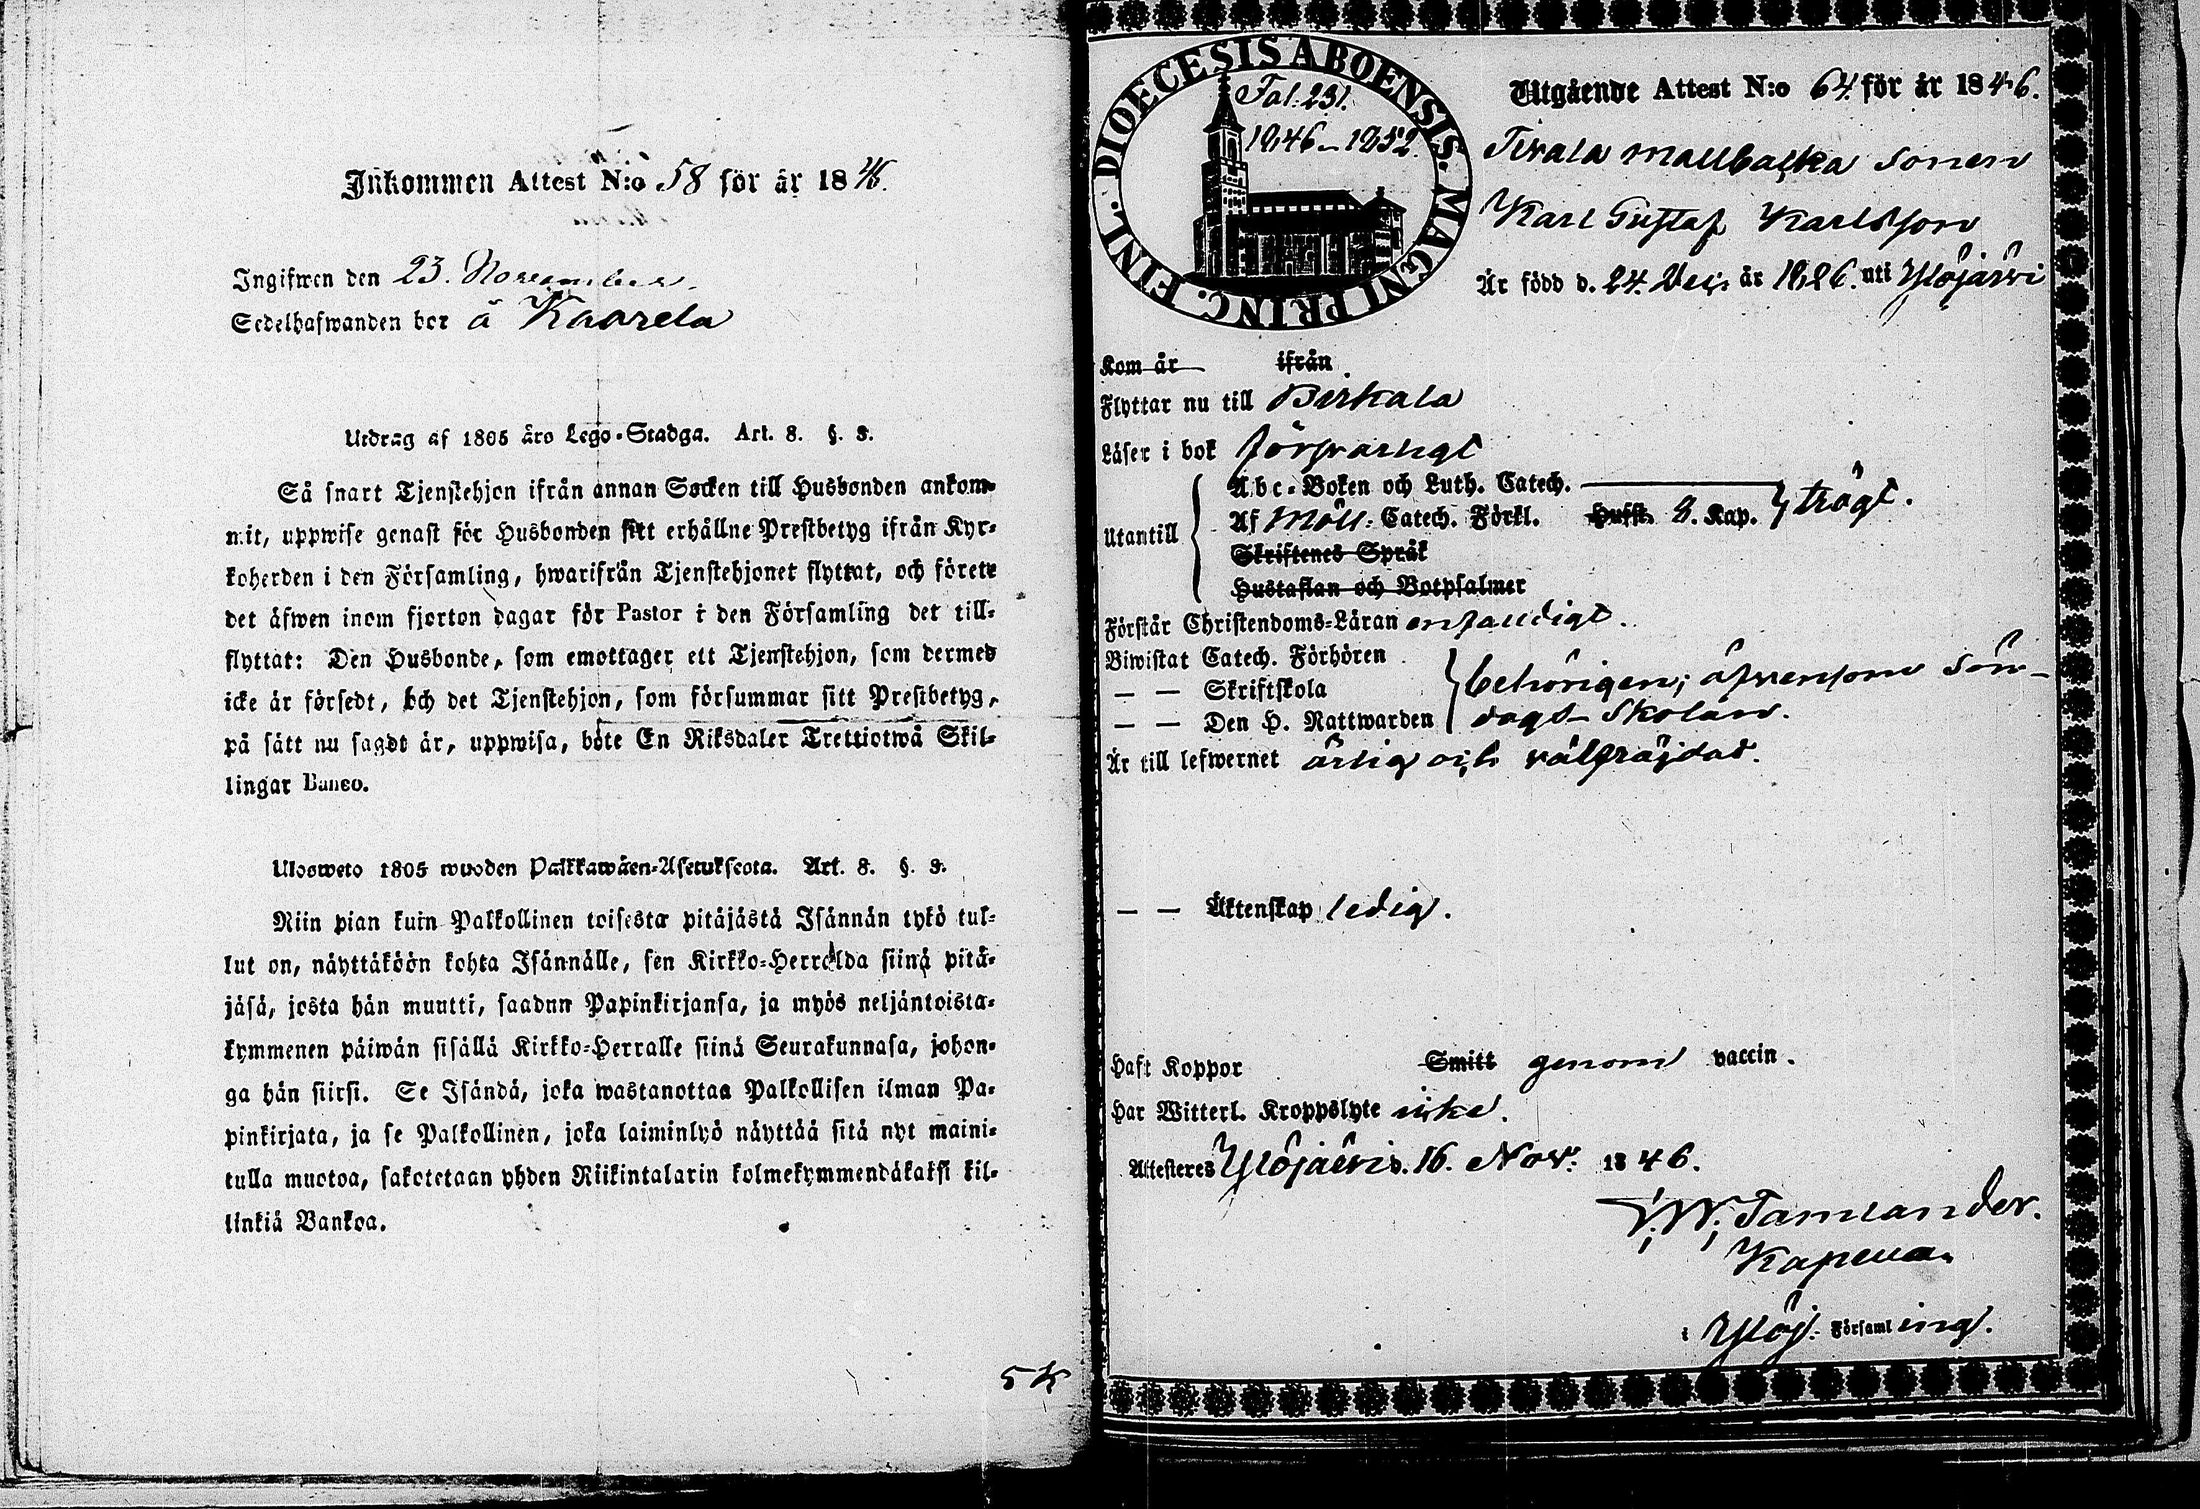 Inkommen Attest N:o 58 för år 1846.
Ingifwen den 23. November.
Sedelhafwanden bor å Kaarela
Utdrag af 1805 års Lego-Stadga. Art. 8. §. 3.
Så snart Tjenstehjon ifrån annan Socken till Husbonden ankom-
mit, uppwise genast för Husbonden sitt erhållne Prestbetyg ifrån Kyr-
koherden i den Församling, hwarifrån Tjenstehjonet flyttat, och förete
det äfwen inom fjorton dagar för Pastor i den Församling det till-
flyttat: Den Husbonde, som emottager ett Tjenstehjon, som dermed
icke är försedt, och det Tjenstehjon, som försummar sitt Prestbetyg,
på sätt nu sagdt är, uppwisa, böte En Riksdaler Trettiotwå Skil-
lingar Banco.
Uloosweto 1805 wuoden Palkkawäen-Asetuksesta. Art. 8. §. 3.
Niin pian kuin Palkollinen toisesta pitäjästä Isännän tykö tul-
lut on, näyttäköön kohta Isännälle, sen Kirkko-Herralda siinä pitä-
jäsä, josta hän muutti, saadun Papinkirjansa, ja myös neljäntoista-
kymmenen päiwän sisällä Kirkko-Herralle siinä Seurakunnasa, johon-
ga hän siirsi. Se Isändä, joka wastanottaa Palkollisen ilman Pa-
pinkirjata, ja se Palkollinen, joka laiminlyö näyttää sitä nyt maini-
tulla muotoa, sakotetaan yhden Riikintalarin kolmekymmendäkaksi kil-
linkiä Bankoa.
DIOECESIS ABOENSIS. MAGNI PRINC. FINL.
Fol. 231.
1846-1852.
Utgående Attest N:o 64. för år 1846.
Karl Gustaf Karlsson
Är född d. 24. Dec. år 1826. uti Ylöjärvi
Kom år ifrån
Flyttar nu till Birkala
Läser i bok försvarligt
Utantill
Abc-Boken och Luth. Catech.
Af Möll: Catech. Förkl. Hufst. 8. Kap. trögt.
Skriftenes Språk
Hustaflan och Botpsalmer
Förstår Christendoms-Läran enfaldigt.
Biwistat Catech. Förhören
— — Skriftskola
— — Den H. Nattwarden
behörigen; äfvensom Sön-
dags-Skolan.
Är till lefwernet ärlig och välfräjdad.
— — Äktenskap ledig.
Haft Koppor Smitt genom vaccin.
Har Witterl. Kroppslyte icke.
Attesteres Ylöjärvi d. 16. Nov. 1846.
Tamlander.
Kapellan
i Ylöj. Församling.